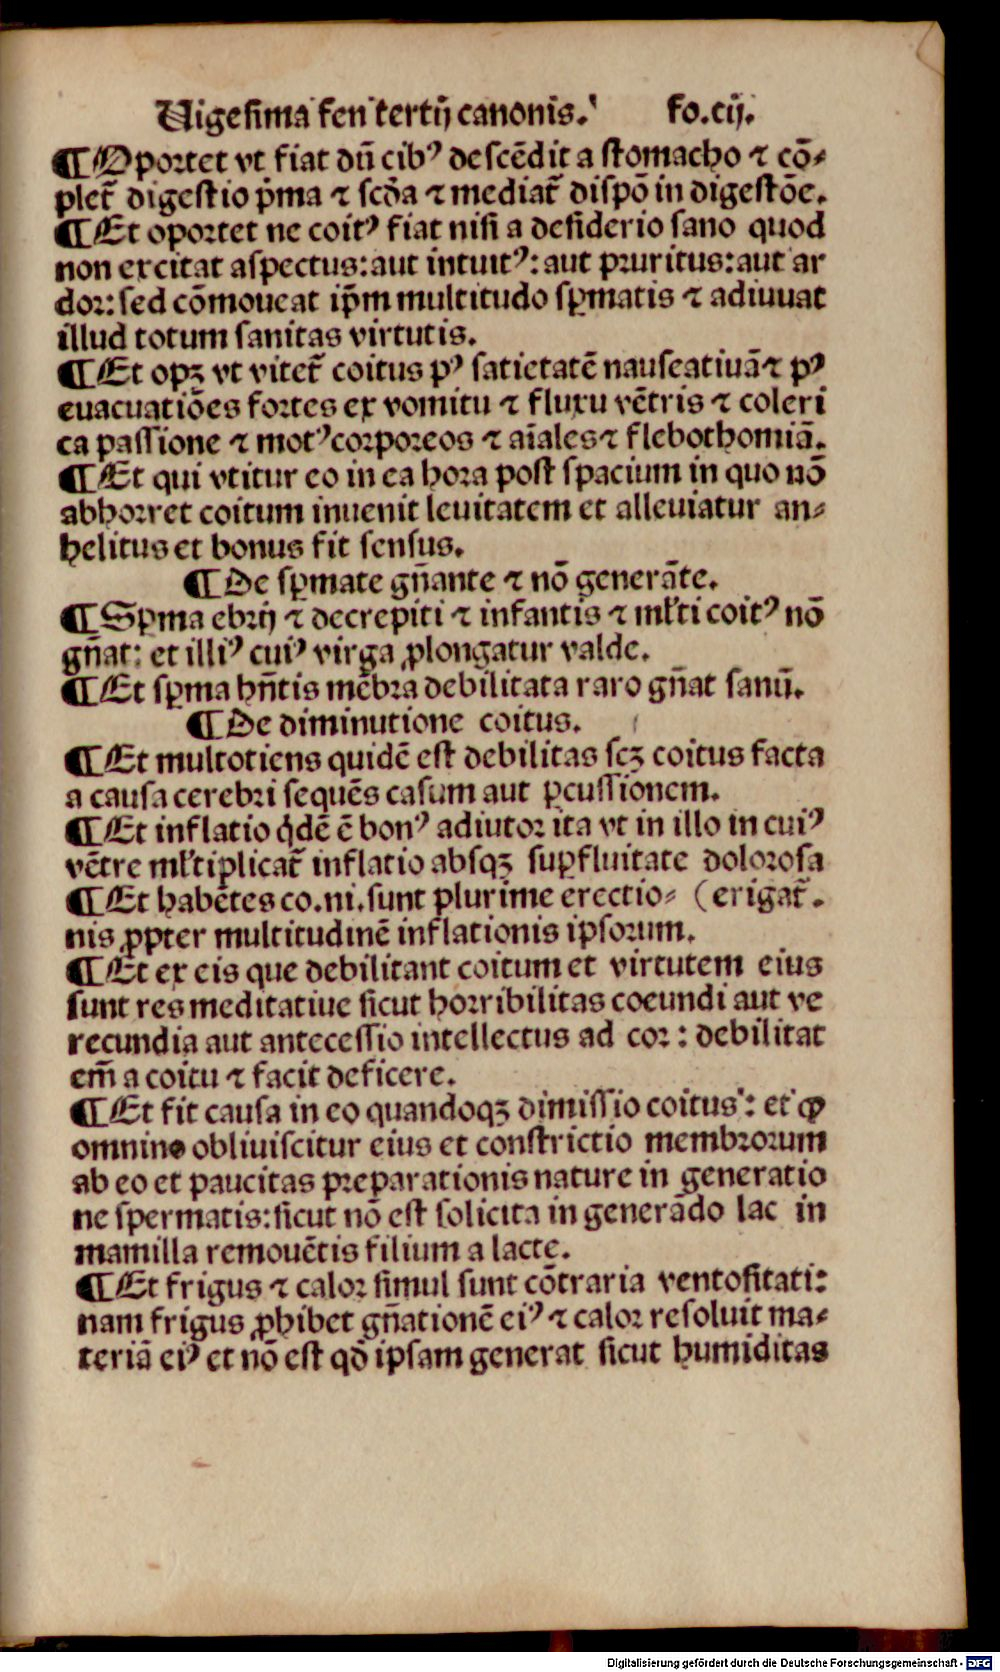 Uigesima fen tertij canonis. fo.cij.
¶ Oportet vt fiat dũ cibꝰ descẽdit a stomacho ⁊ cõ⸗
plet᷑ digestio p̃ma ⁊ scd̃a ⁊ mediat᷑ dispõ in digestõe.
¶ Et oportet ne coitꝰ fiat nisi a desiderio sano quod
non excitat aspectus: aut intuitꝰ: aut pruritus: aut ar
dor: sed cõmoueat ip̃m multitudo sꝑmatis ⁊ adiuuat
illud totum sanitas virtutis.
¶ Et opꝫ vt vitet᷑ coitus pꝰ satietatẽ nauseatiuã ⁊ pꝰ
euacuatiões fortes ex vomitu ⁊ fluxu vẽtris ⁊ coleri
ca passione ⁊ motꝰ corporeos ⁊ aĩales ⁊ flebothomiã.
¶ Et qui vtitur eo in ea hora post spacium in quo nõ
abhorret coitum inuenit leuitatem et alleuiatur an⸗
helitus et bonus fit sensus.
¶ De sꝑmate gñante ⁊ nõ generãte.
¶ Sꝑma ebrij ⁊ decrepiti ⁊ infantis ⁊ mĺti coitꝰ nõ
gñat: et illiꝰ cuiꝰ virga ꝓlongatur valde.
¶ Et sꝑma hñtis mẽbra debilitata raro gñat sanũ.
¶ De diminutione coitus.
¶ Et multotiens quidẽ est debilitas scꝫ coitus facta
a causa cerebri sequẽs casum aut ꝑcussionem.
¶ Et inflatio q̇dẽ ẽ bonꝰ adiutor ita vt in illo in cuiꝰ
vẽtre mĺtiplicat᷑ inflatio absqꝫ suꝑfluitate dolorosa
¶ Et habẽtes co.ni. sunt plurime erectio⸗ (erigat᷑.
nis ꝓpter multitudinẽ inflationis ipsorum.
¶ Et ex eis que debilitant coitum et virtutem eius
sunt res meditatiue sicut horribilitas coeundi aut ve
recundia aut antecessio intellectus ad cor: debilitat
em̃ a coitu ⁊ facit deficere.
¶ Et fit causa in eo quandoqꝫ dimissio coitus: et ꝙ
omnino obliuiscitur eius et constrictio membrorum
ab eo et paucitas preparationis nature in generatio
ne spermatis: sicut nõ est solicita in generãdo lac in
mamilla remouẽtis filium a lacte.
¶ Et frigus ⁊ calor simul sunt cõtraria ventositati:
nam frigus ꝓhibet gñationẽ eiꝰ ⁊ calor resoluit ma⸗
teriã eiꝰ et nõ est qd̃ ipsam generat sicut humiditas
Digitalisierung gefördert durch die Deutsche Forschungsgemeinschaft - DFG